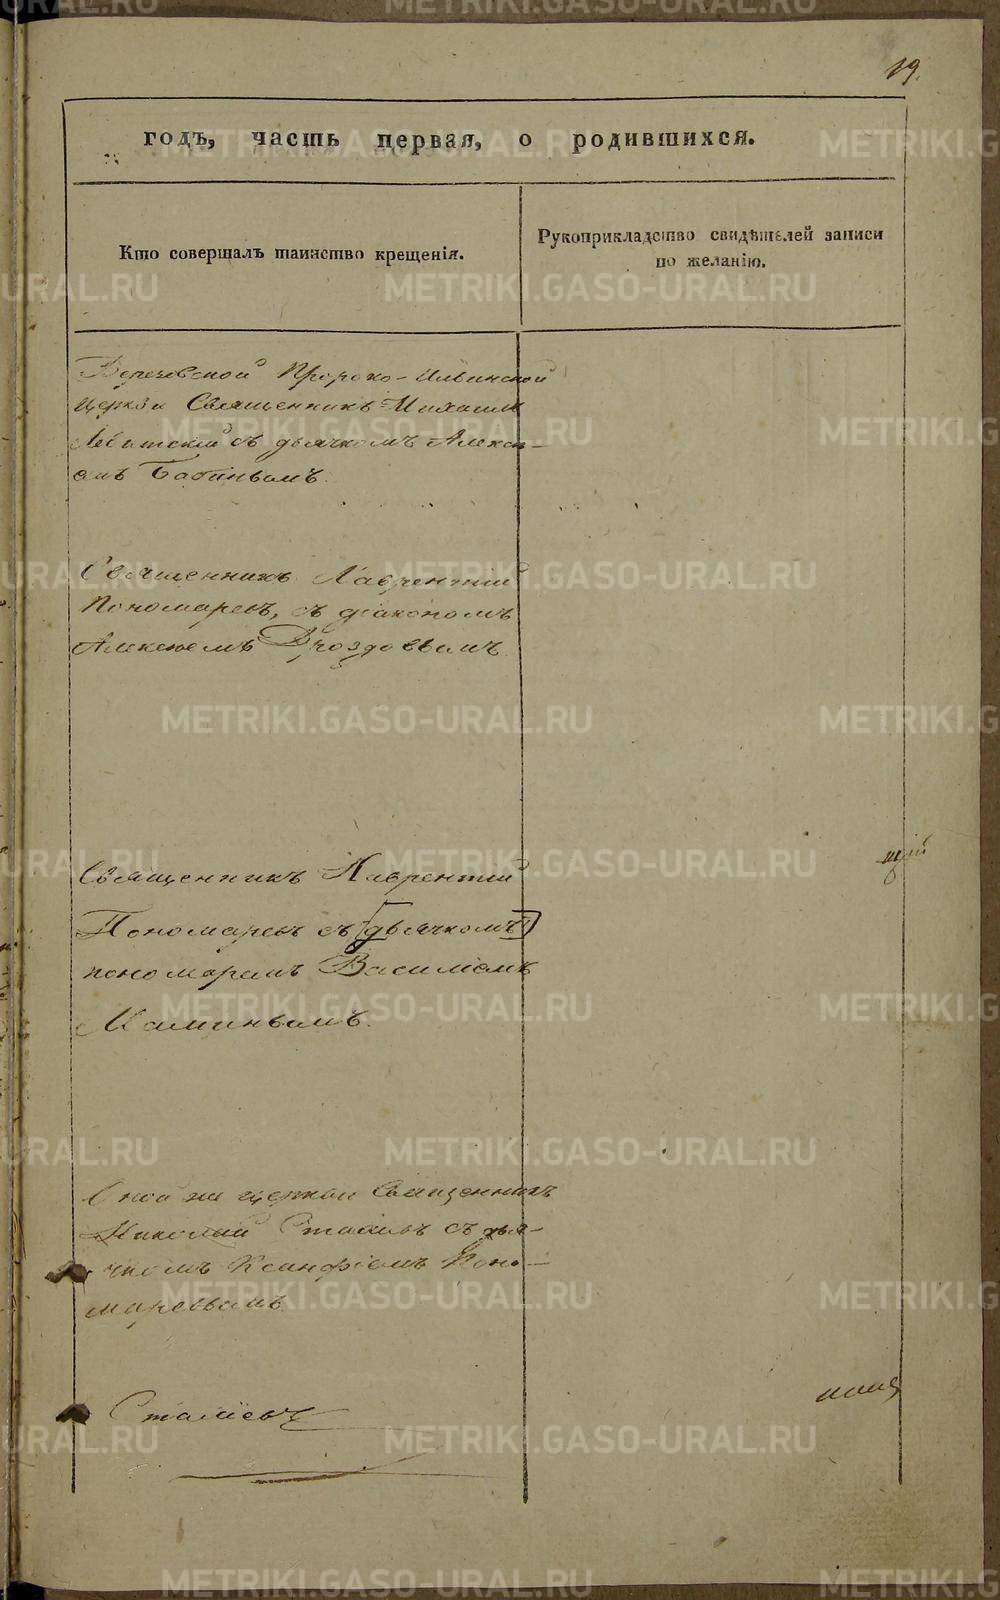 19.
годъ, часть первая, о родившихся.
Кто совершалъ таинство крещенія.
Рукоприкладство свидѣтелей записи
по желанію.
Пророко-Ильинской
Церкви Священникъ Михаилъ
Левитскій съ дьячкомъ Алексѣ-
емъ
Священникъ Лаврентій
Пономаревъ, съ діакономъ
Алексѣемъ Дроздовымъ.
Священникъ Лаврентій
Пономаревъ съ [дьячкомъ]
пономаремъ Василіемъ
Маминымъ.
Оной же церкви Священникъ
Николай съ дья-
чкомъ Ксенофонтомъ Поно-
маревымъ
METRIKI.GASO-URAL.RU